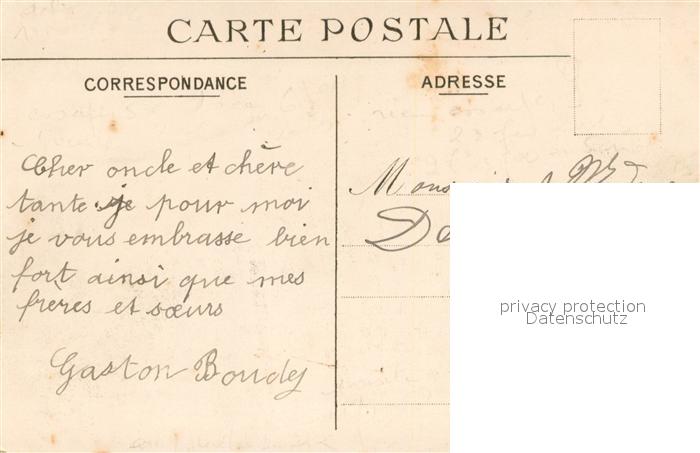 CARTE POSTALE
CORRESPONDANCE
ADRESSE
Cher oncle et chère
tante je pour moi
je vous embrasse bien
fort ainsi que mes
frères et sœurs
Gaston Boudy
privacy protection
Datenschutz